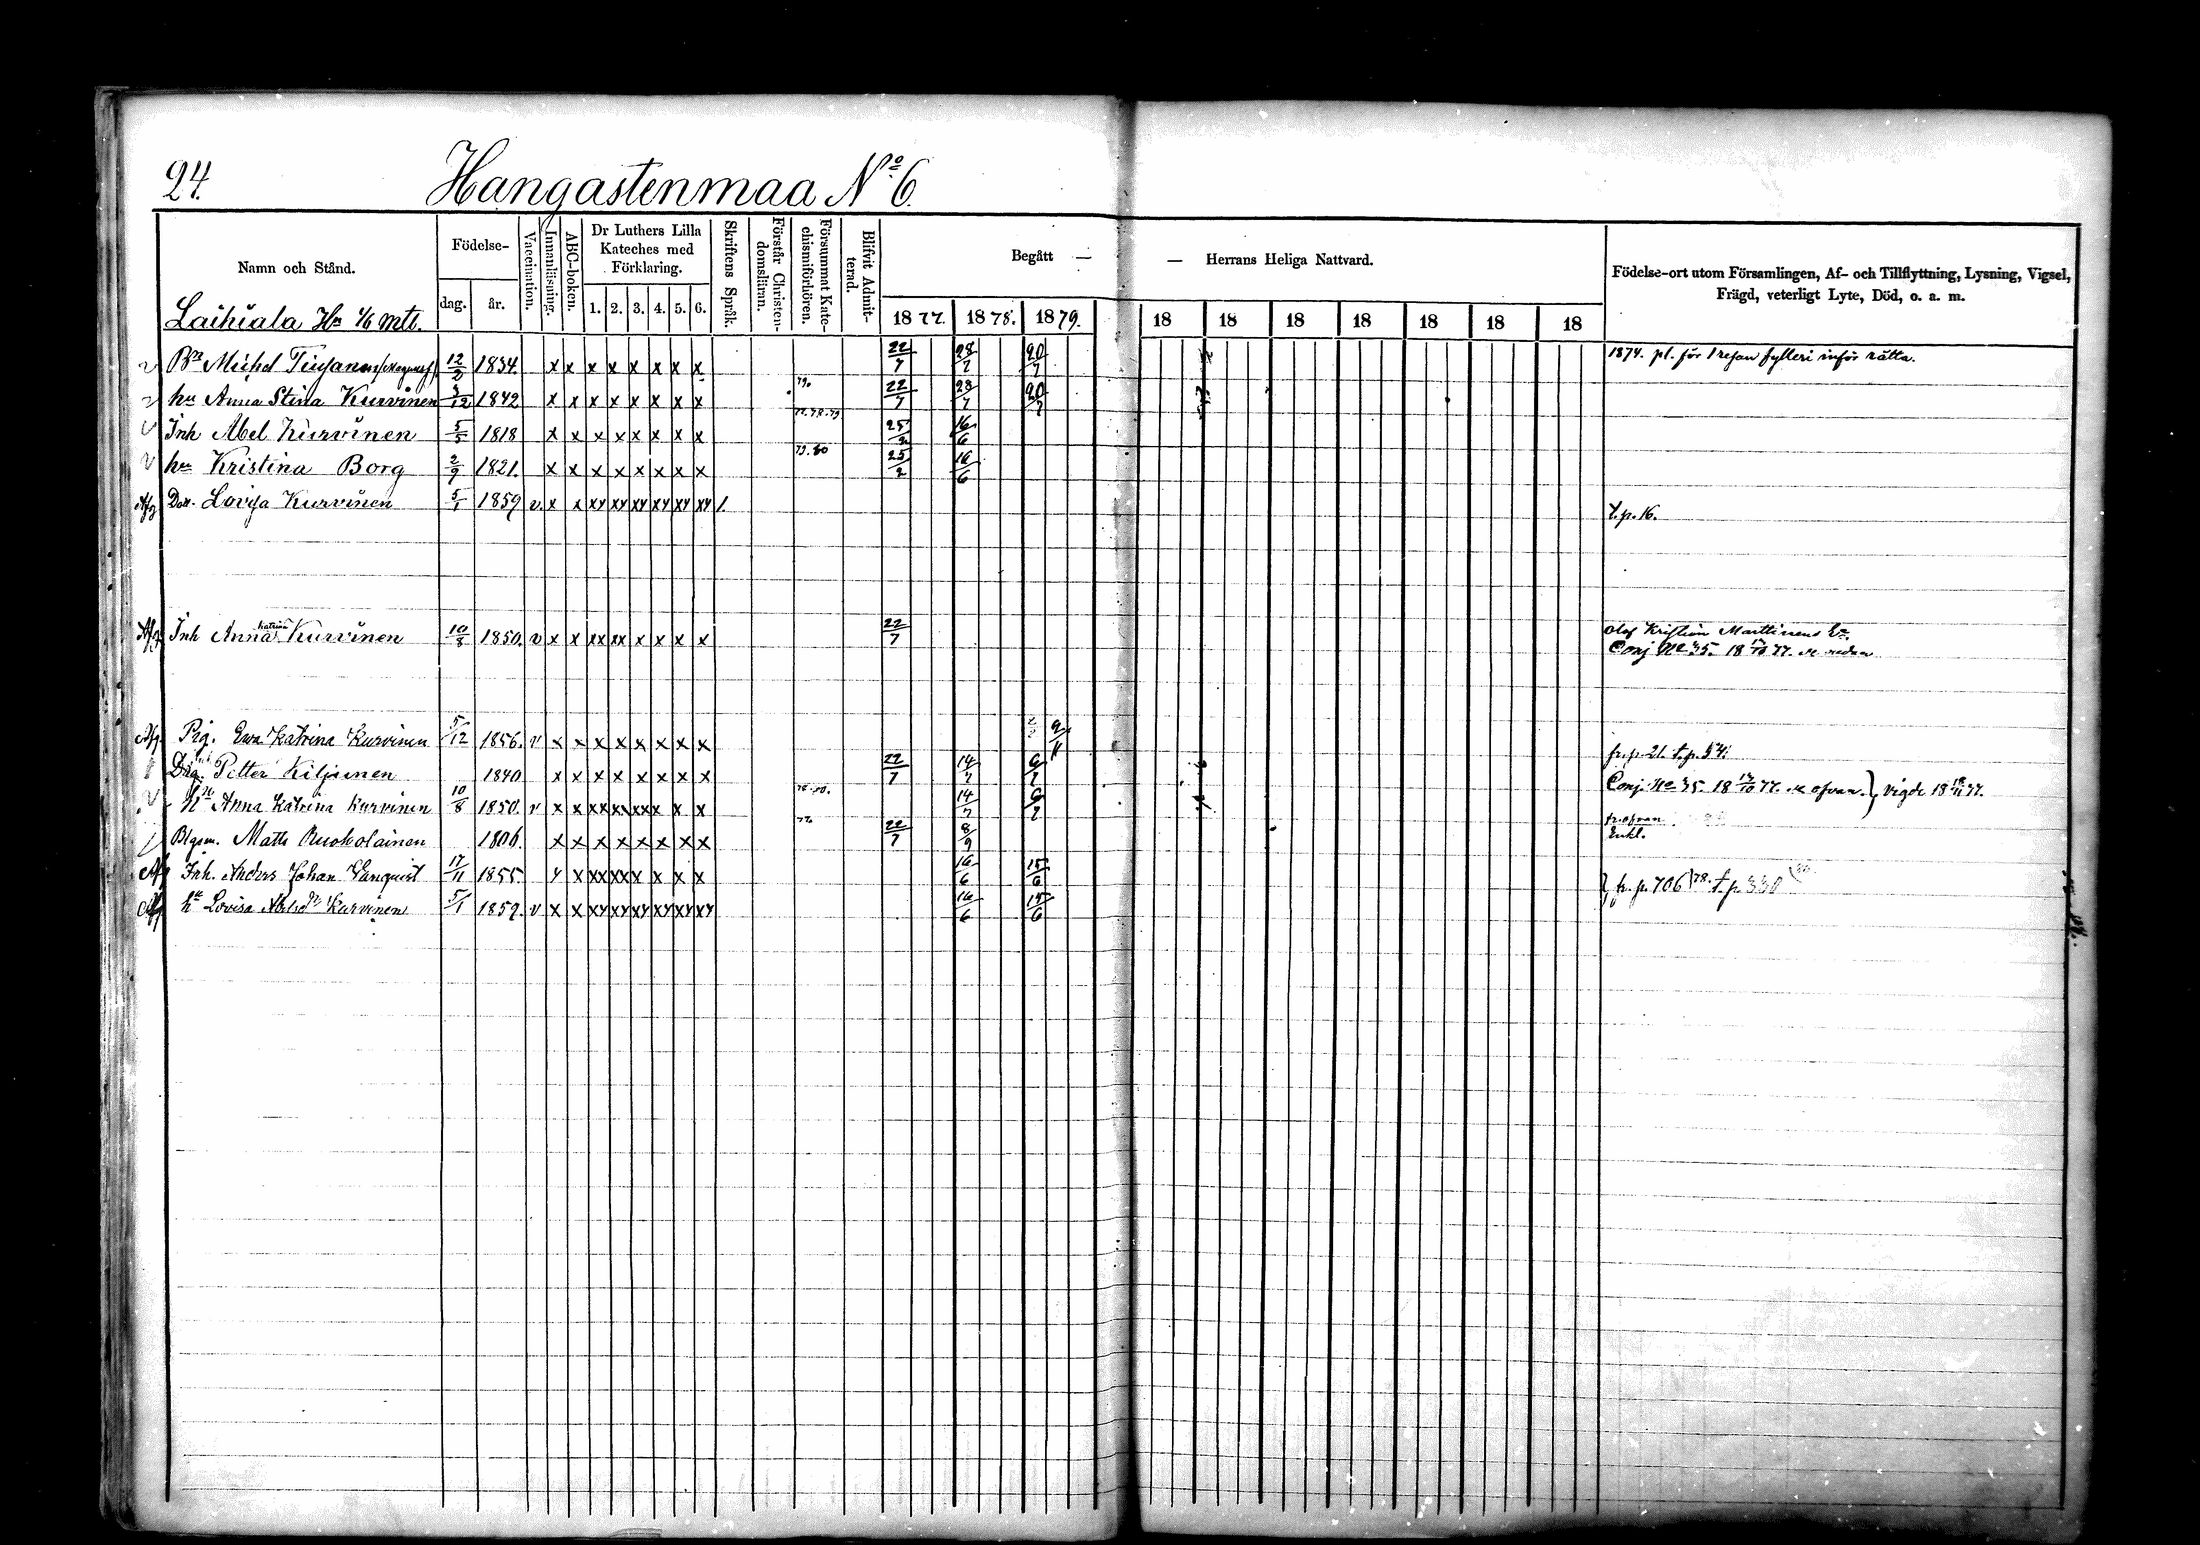 24.
Hangastenmaa Nº 6.
Namn och Stånd.
Födelse-
dag. år.
Vaccination.
Innanläsning.
ABC-boken.
Dr Luthers Lilla Kateches med Förklaring.
1. 2. 3. 4. 5. 6.
Skriftens Språk.
Förstår Christen-domsläran.
Försummat Kate-chismiförhören.
Blifvit Admit-terad.
Begått — — Herrans Heliga Nattvard.
1877. 1878. 1879. 18 18 18 18 18 18 18
Födelse-ort utom Församlingen, Af- och Tillflyttning, Lysning, Vigsel,
Frägd, veterligt Lyte, Död, o. a. m.
Laihiala Hn 1/6 mtl.
Michel 12/2 1834. x x x x x x x x 22/7 28/7 20/7 1874. pl. för 1 resan fylleri inför rätta.
hu Anna Stina Kurvinen 3/12 1842 x x x x x x x x 79. 22/7 28/7 20/7
Inh Abel Kurvinen 5/5 1818 x x x x x x x x 77.78.79 25/2 16/6
hu Kristina Borg 2/9 1821. x x x x x x x x 79.80 25/2 16/6
Afg Dott. Lovisa Kurvinen 5/1 1859 v. x x xy xy xy xy xy xy 1. t.p. 16.
Afg Inh Anna Katrina Kurvinen 10/8 1850. v x x xx xx x x x x 22/7 Olof Kristian Marttinens
Conj Nº 35. 18 13/10 77. se nedan
Afg. Pig. Ewa Katrina Kurvinen 5/12 1856. v x x x x x x x x 9/11 fr. p. 21. t. p. 54.
Petter Kiljunen 1840 x x x x x x x x 22/7 14/7 6/7 Conj. Nº 35. 18 13/10 77. se ofvan. } vigde 18 18/11 77.
hu Anna Katrina Kurvinen 10/8 1850. v x x xx xx xx x x x 14/7 6/7 fr. ofvan
Matts Ruokolainen 1806. x x x x x x x x 77. 22/7 8/9 Enkl.
Afg Inh. Anders Johan 17/11 1855 y x xx xx x x x x 16/6 15/6 } fr. p. 706 78. t. p. 330
Afg hu Lovisa Kurvinen 5/1 1859. v x x xy xy xy xy xy xy 16/6 15/6